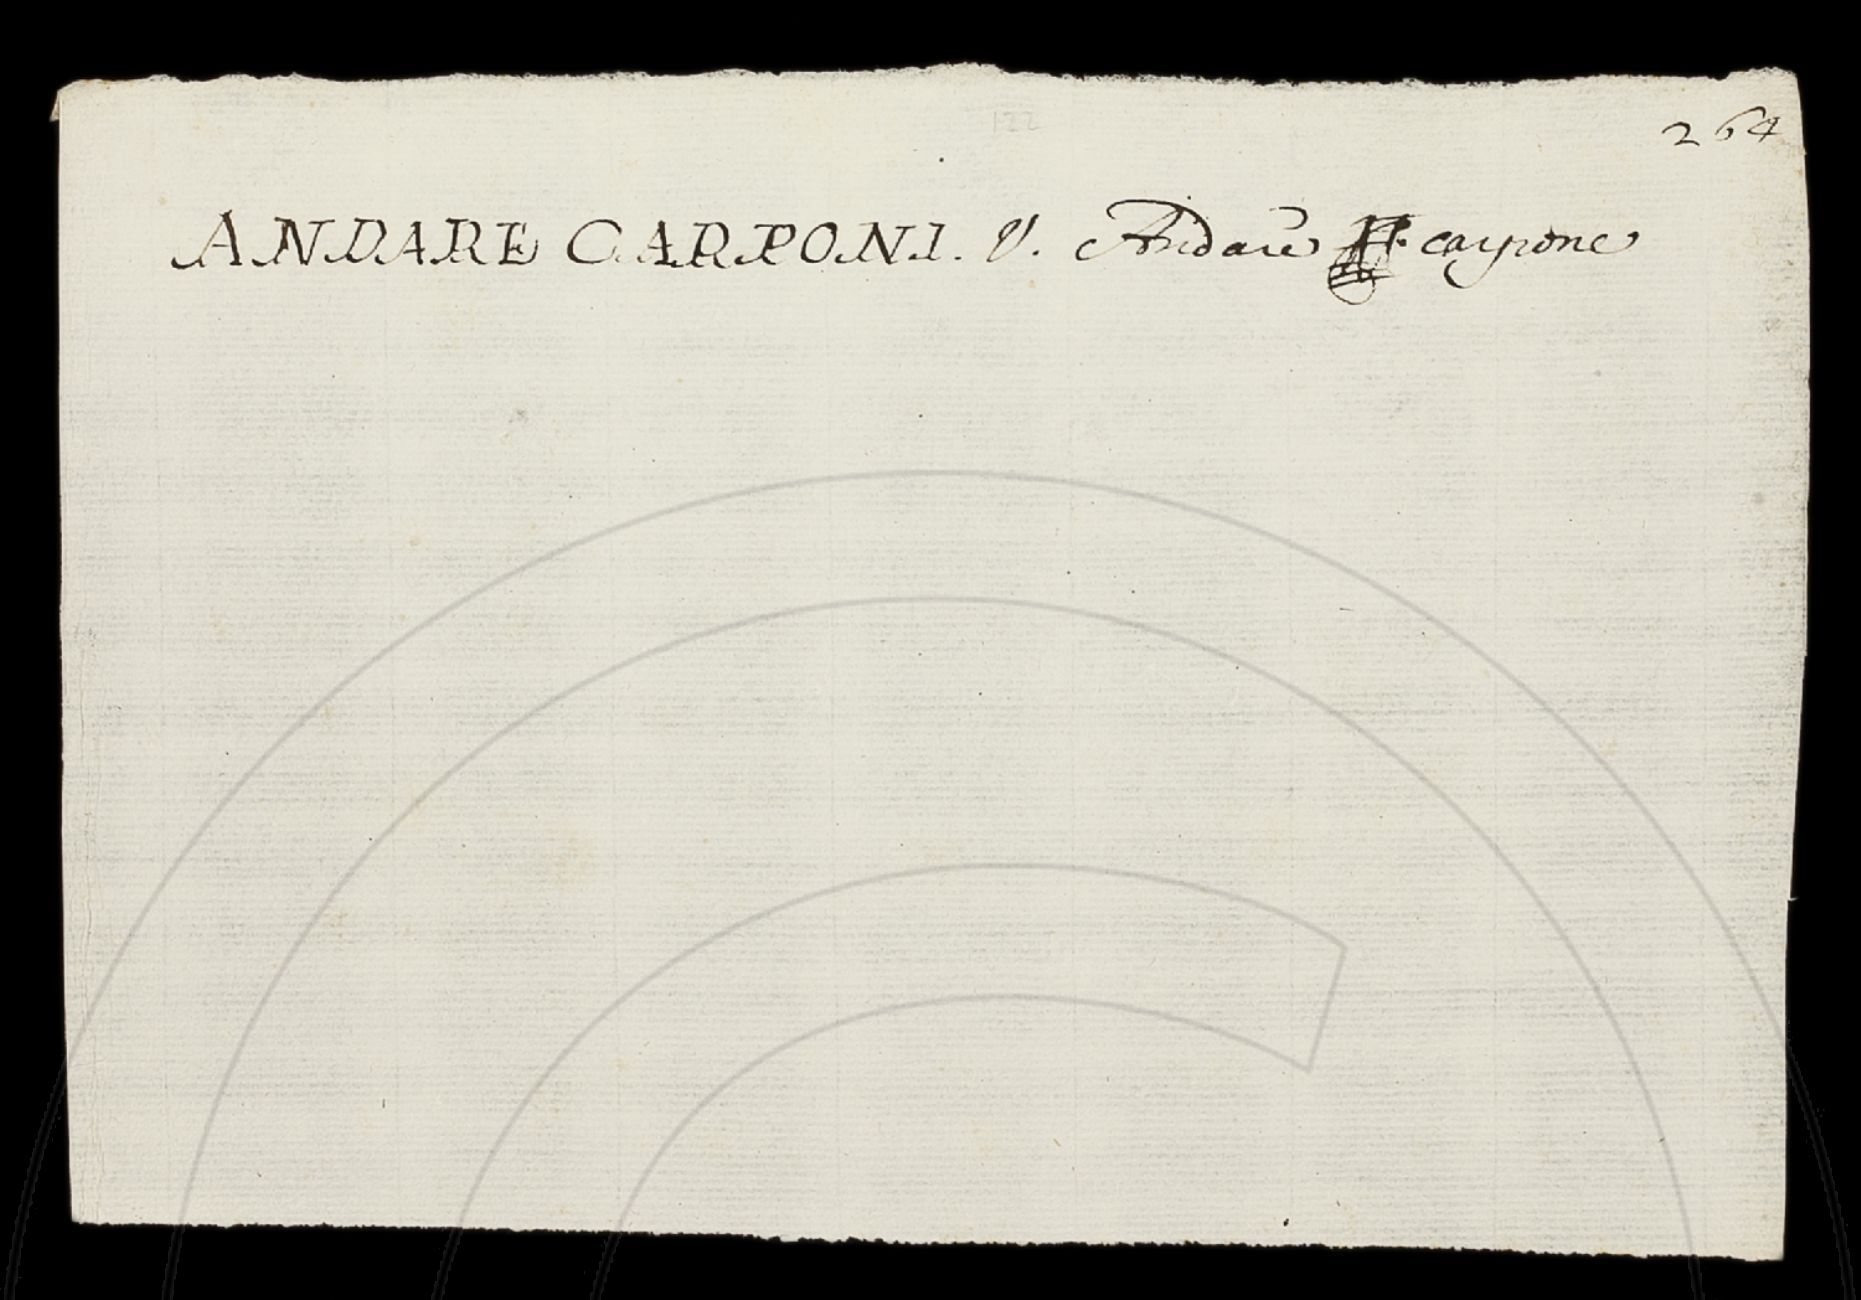 122
264
ANDARE CARPONI. V. Andare carpone